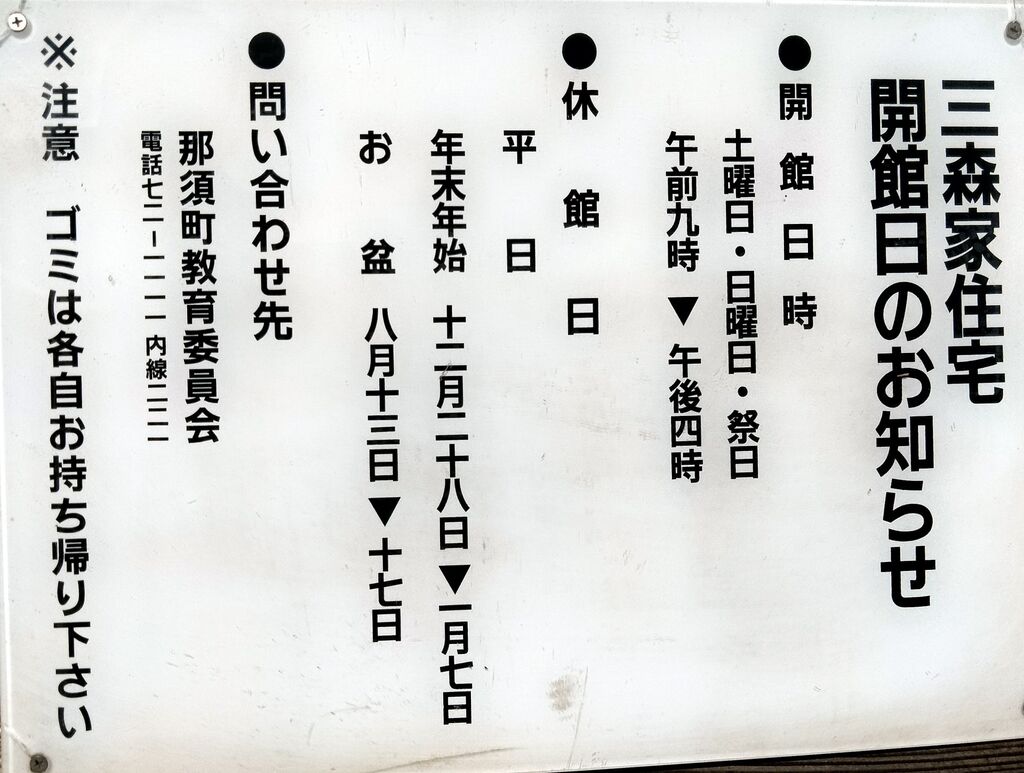 三森家住宅
開館日のお知らせ
●開館日時
土曜日・日曜日・祭日
午前九時▼午後四時
●休館日
平日
年末年始 十二月二十八日▼一月七日
お盆 八月十三日▼十七日
●問い合わせ先
那須町教育委員会
電話七二ー一一一一 内線二二一
※注意 ゴミは各自お持ち帰り下さい